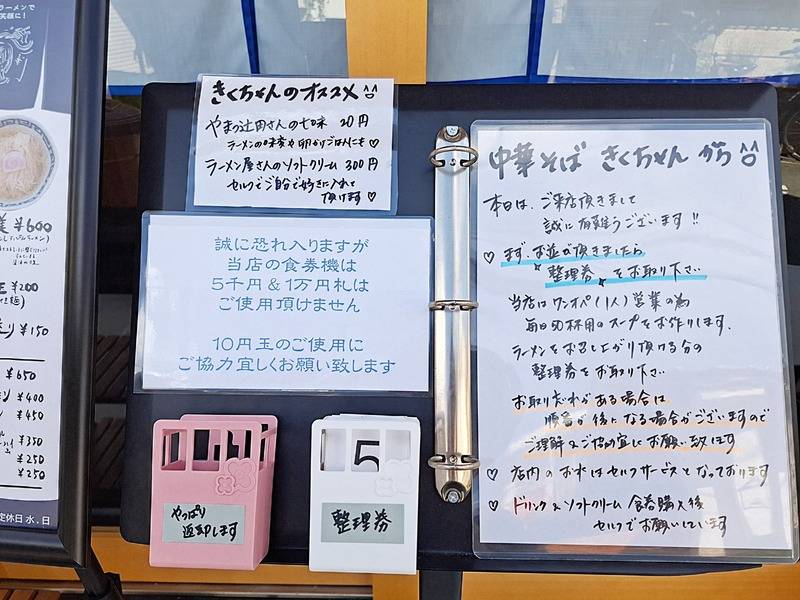 ラーメンで
笑顔に!
¥600
¥200
¥150
¥650
¥400
¥450
¥350
¥250
¥250
定休日 水.日
きくちゃんのオススメ
やまつ辻田さんの七味 20円
ラーメンの味変や卵かけごはんにも♡
ラーメン屋さんのソフトクリーム 300円
セルフでご自分で好きに入れて
頂けます♡
誠に恐れ入りますが
当店の食券機は
5千円&1万円札は
ご使用頂けません
10円玉のご使用に
ご協力宜しくお願い致します
やっぱり
返却します
5
整理券
中華そば きくちゃん から
本日は、ご来店頂きまして
誠に有難うございます!!
♡ まず、お並び頂きましたら
整理券 をお取り下さい
当店はワンオペ(1人)営業の為
毎日50杯用のスープをお作りします.
ラーメンをお召し上がり頂ける分の
整理券をお取り下さい
お取り忘れがある場合は
順番が後になる場合がございますので
ご理解&ご協力宜しくお願い致します
♡ 店内のお水はセルフサービスとなっております
♡ ドリンク&ソフトクリーム 食券購入後
セルフでお願いしています